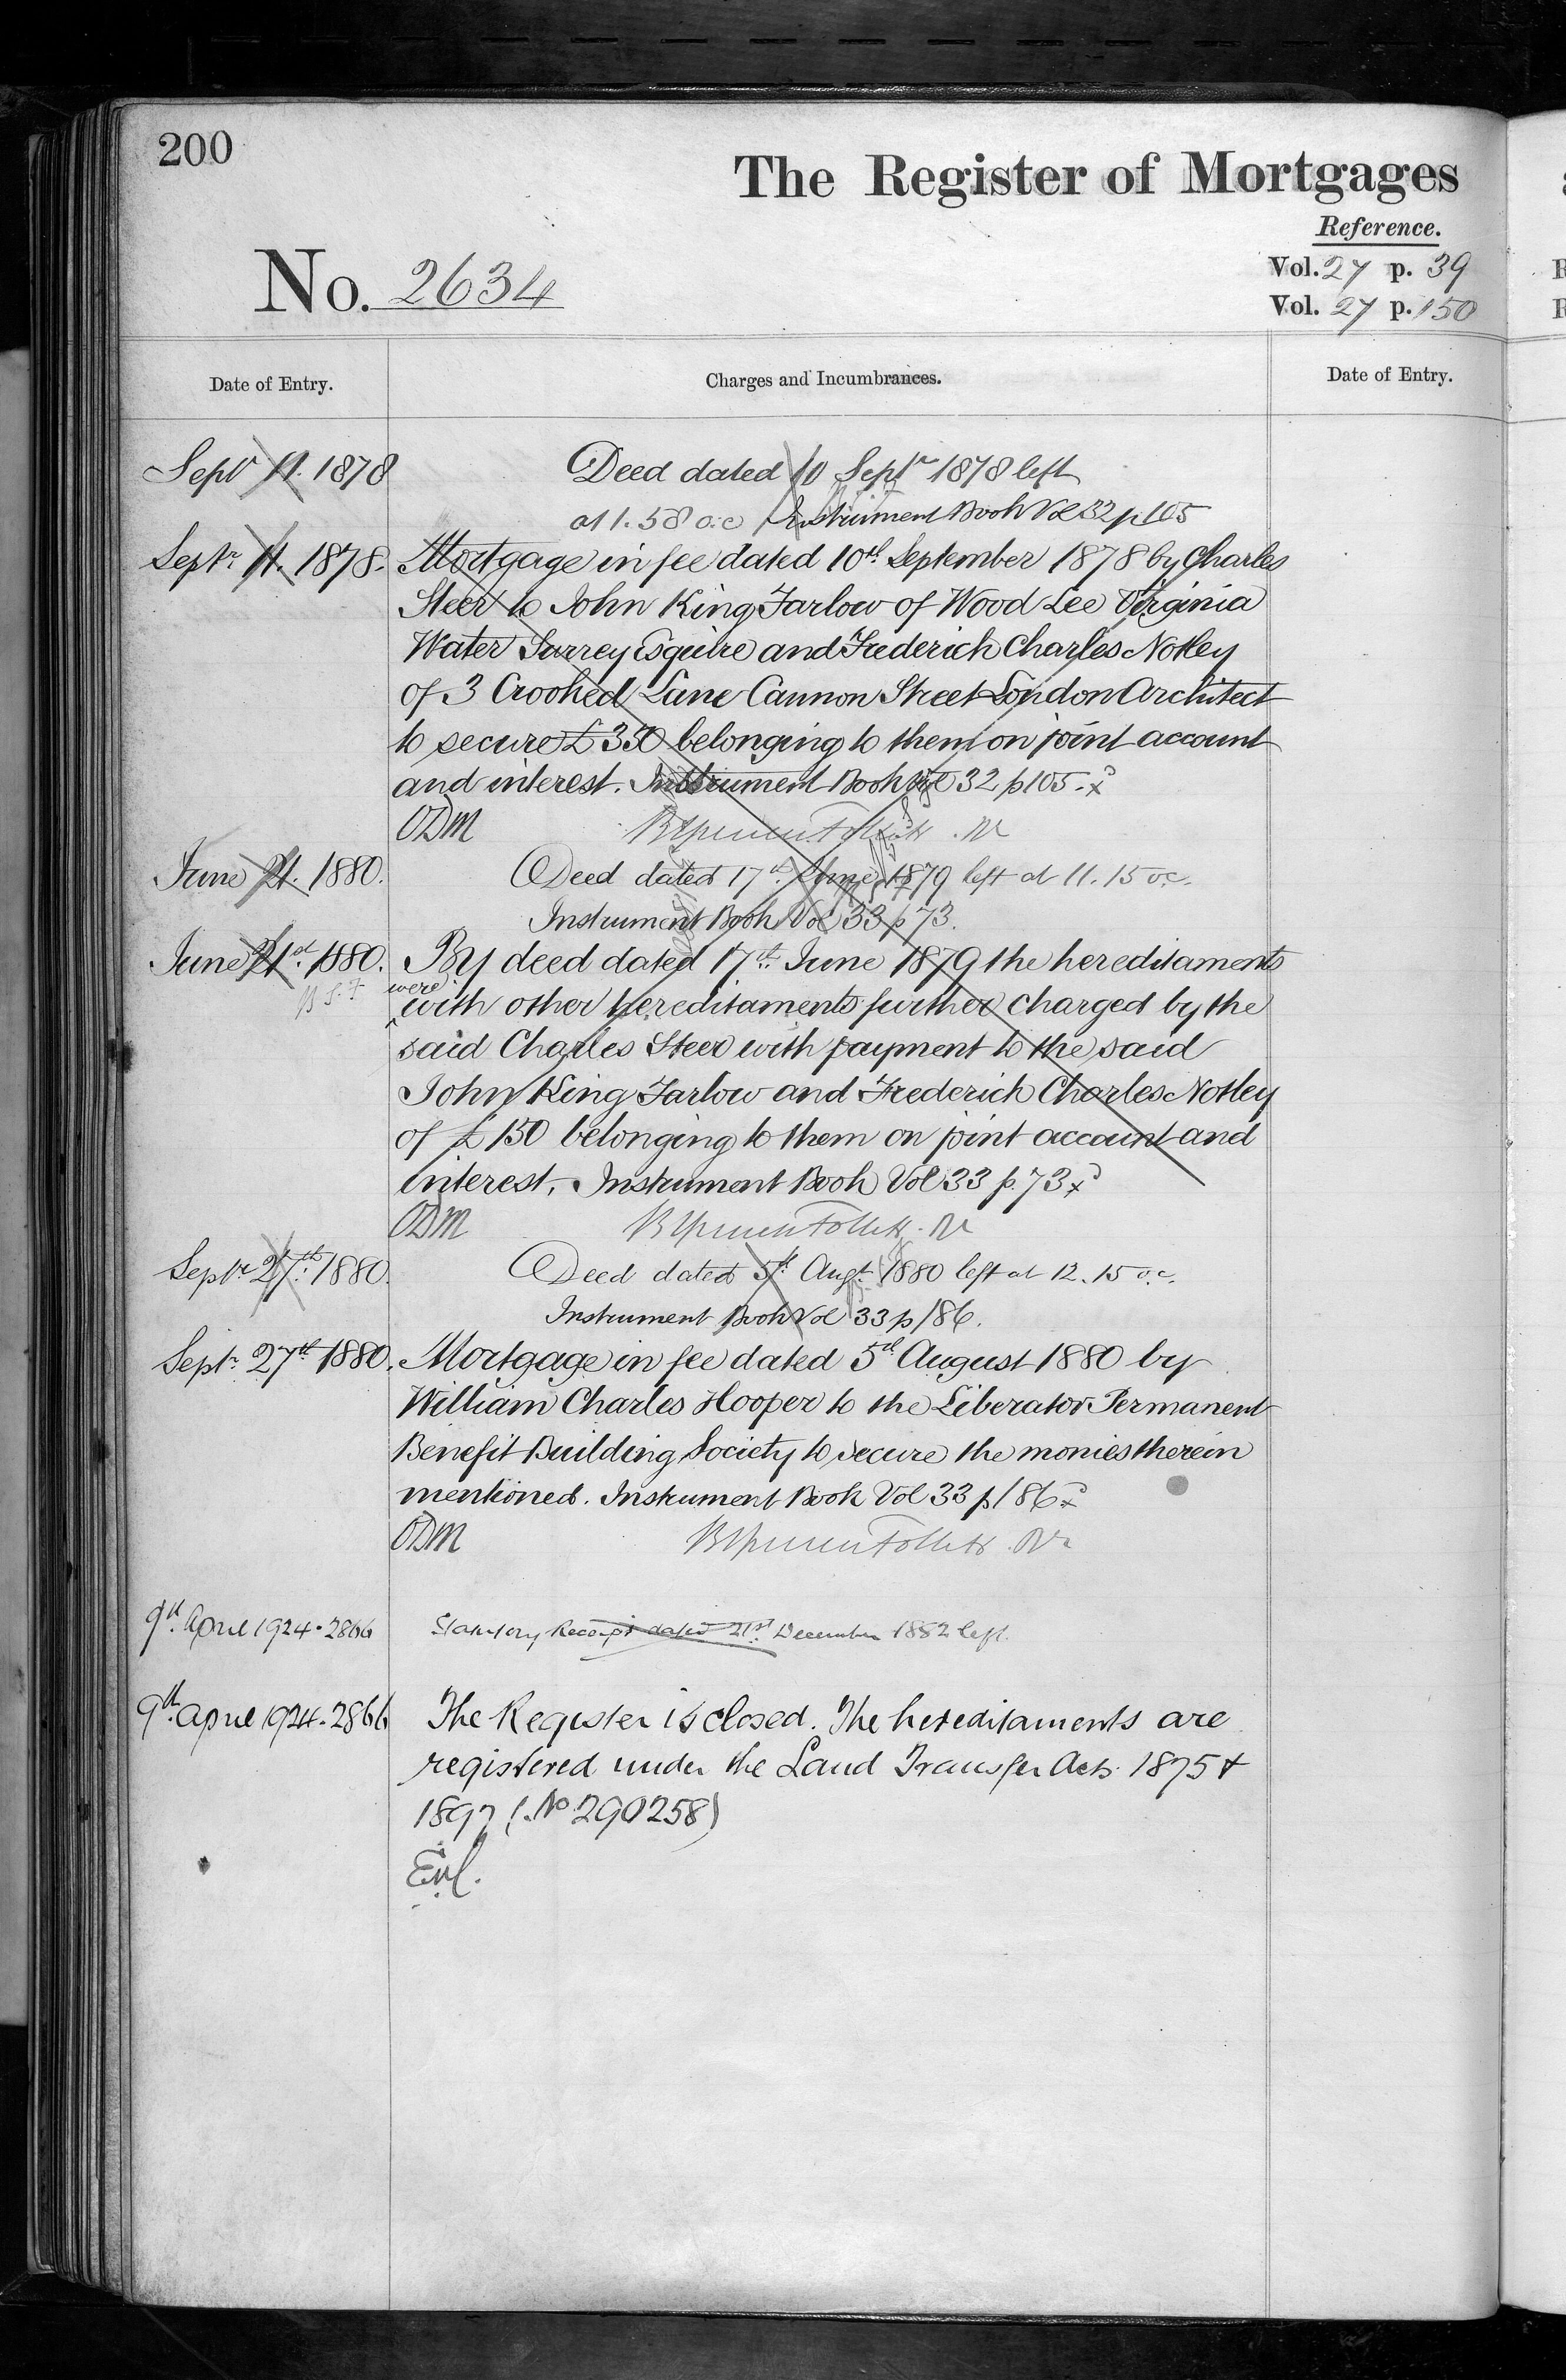 200
The Register of Mortgages
Reference.
No. 2634
Vol. 27 p. 39
Vol. 27 p. 150
Date of Entry.
Charges and Incumbrances.
Date of Entry.
Septr 11. 1878
Deed dated 10 Septr 1878 left
at 1.58 o.c Instrument Book Vol 32 p 105
Septr. 11. 1878.
Mortgage in fee dated 10th September 1878 by Charles
Steer to John King Farlow of Wood Lee Virginia
Water Surrey Esquire and Frederick Charles Notley
of 3 Crooked Lane Cannon Street London Architect
to secure £350 belonging to them on joint account
and interest. Instrument Book Vol 32 p 105.
ODM
June 21. 1880.
Deed dated 17th June 1879 left at 11.15 o.c.
Instrument Book Vol 33 p 73.
June 21st. 1880.
By deed dated 17th June 1879 the hereditaments
were
with other hereditaments further charged by the
said Charles Steer with payment to the said
John King Farlow and Frederick Charles Notley
of £150 belonging to them on joint account and
interest. Instrument Book Vol 33 p. 73
ODM
Septr 27th. 1880.
Deed dated 5th Augt. 1880 left at 12.15 o.c.
Instrument Book Vol 33 p 186.
Septr. 27th 1880.
Mortgage in fee dated 5th August 1880 by
William Charles Hooper to the Liberator Permanent
Benefit Building Society to secure the monies therein
mentioned. Instrument Book Vol 33 p 186
ODM
9th. April 1924. 2866
Statutory Receipt dated 21st December 1882 left.
9th. April 1924. 2866
The Register is closed. The hereditaments are
registered under the Land Transfer Acts 1875 &
1897 (No 290258)